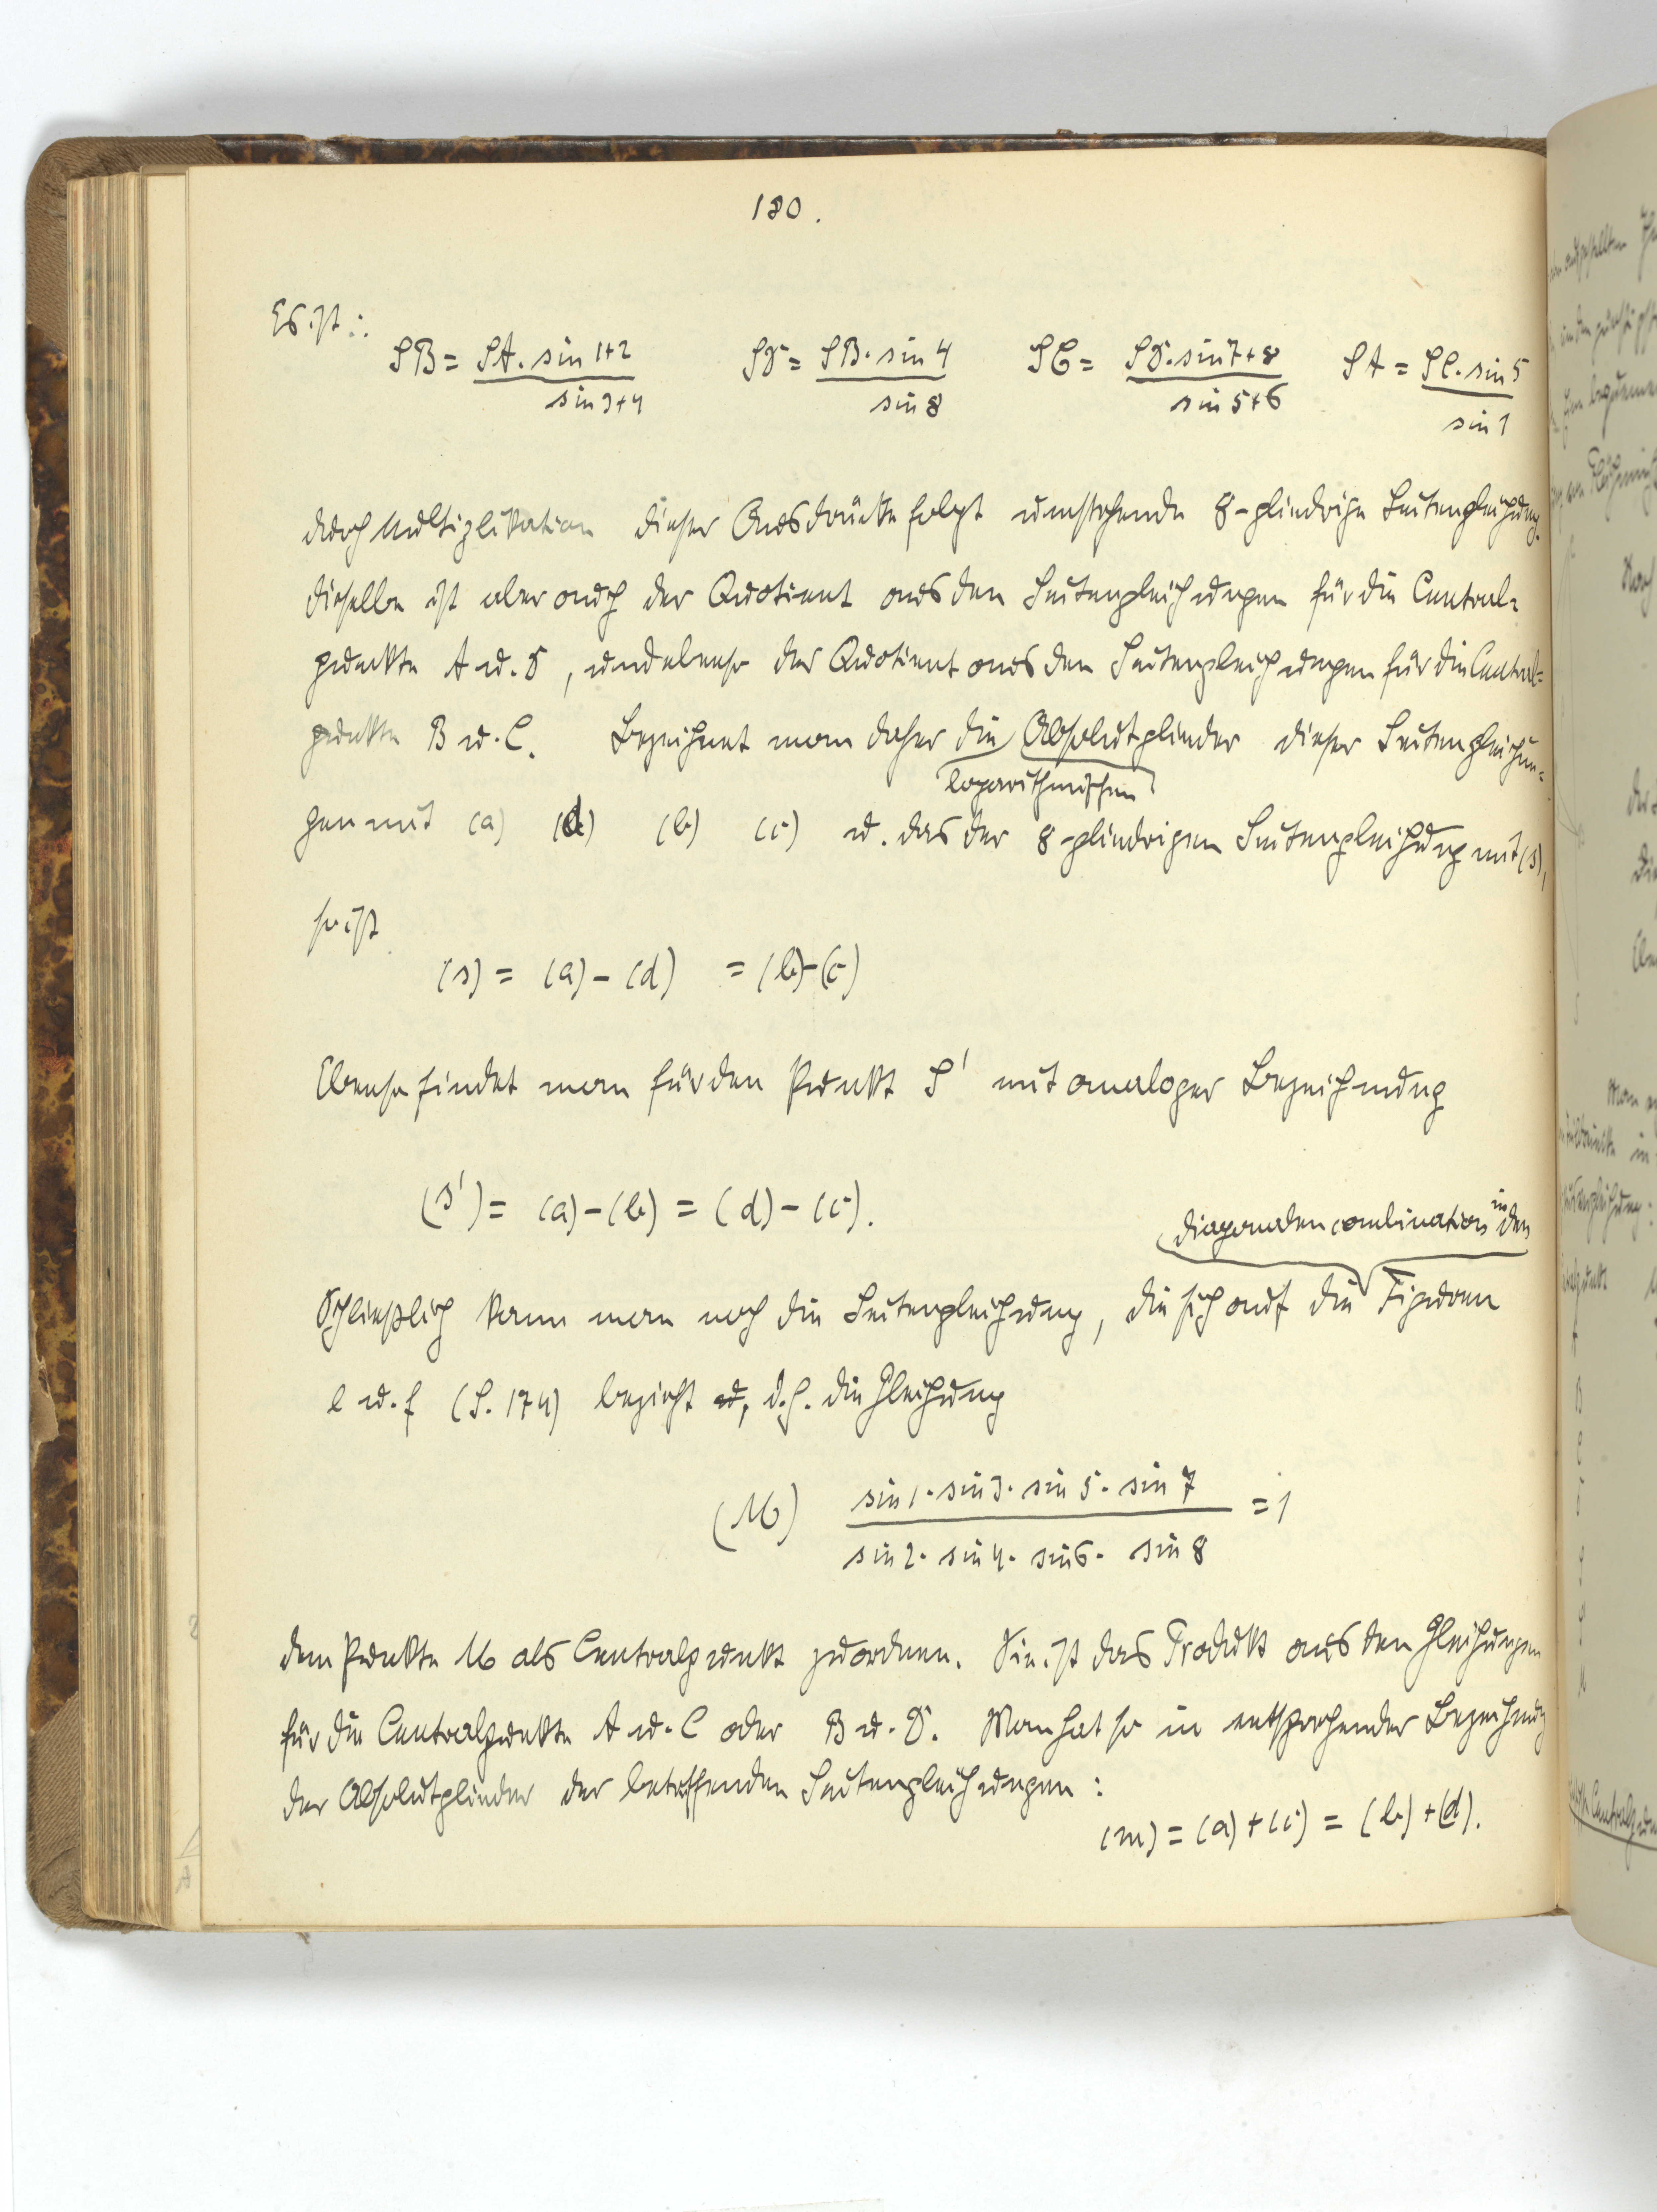 180.
Es ist:
SB = SA. sin 1+2 / sin 3+4   SD = SB. sin 4 / sin 8   SC = SD. sin 7+8 / sin 5+6   SA = SC. sin 5 / sin 1
durch Multiplikation dieser Ausdrücke folgt umstehende 8-gliedrige Seitengleichung.
dieselbe ist aber auch der Quotient aus den Seitengleichungen für die Central-
punkte A u. D, und ebenso der Quotient aus den Seitengleichungen für die Central-
punkte B u. C. Bezeichnet man daher die Absolutglieder dieser Seitengleichun-
logarithmischen
gen mit (a) (d) (b) (c) u. das der 8-gliedrigen Seitengleichung mit (s),
so ist
(s) = (a) - (d) = (b) - (c)
Ebenso findet man für den Punkt S' mit analoger Bezeichnung
(s') = (a) - (b) = (d) - (c).
Diagonalencombination in den
Schließlich kann man noch die Seitengleichung, die sich auf die Figuren
e u. f (S. 174) bezieht u, d.h. die Gleichung
(M) sin 1. sin 3. sin 5. sin 7 / sin 2. sin 4. sin 6. sin 8 = 1
dem Punkte M als Centralpunkt zuordnen. Sie ist das Produkt aus den Gleichungen
für die Centralpunkte A u. C oder B u. D. Man hat so in entsprechender Bezeichnung
der Absolutglieder der betreffenden Seitengleichungen:
(m) = (a) + (c) = (b) + (d).